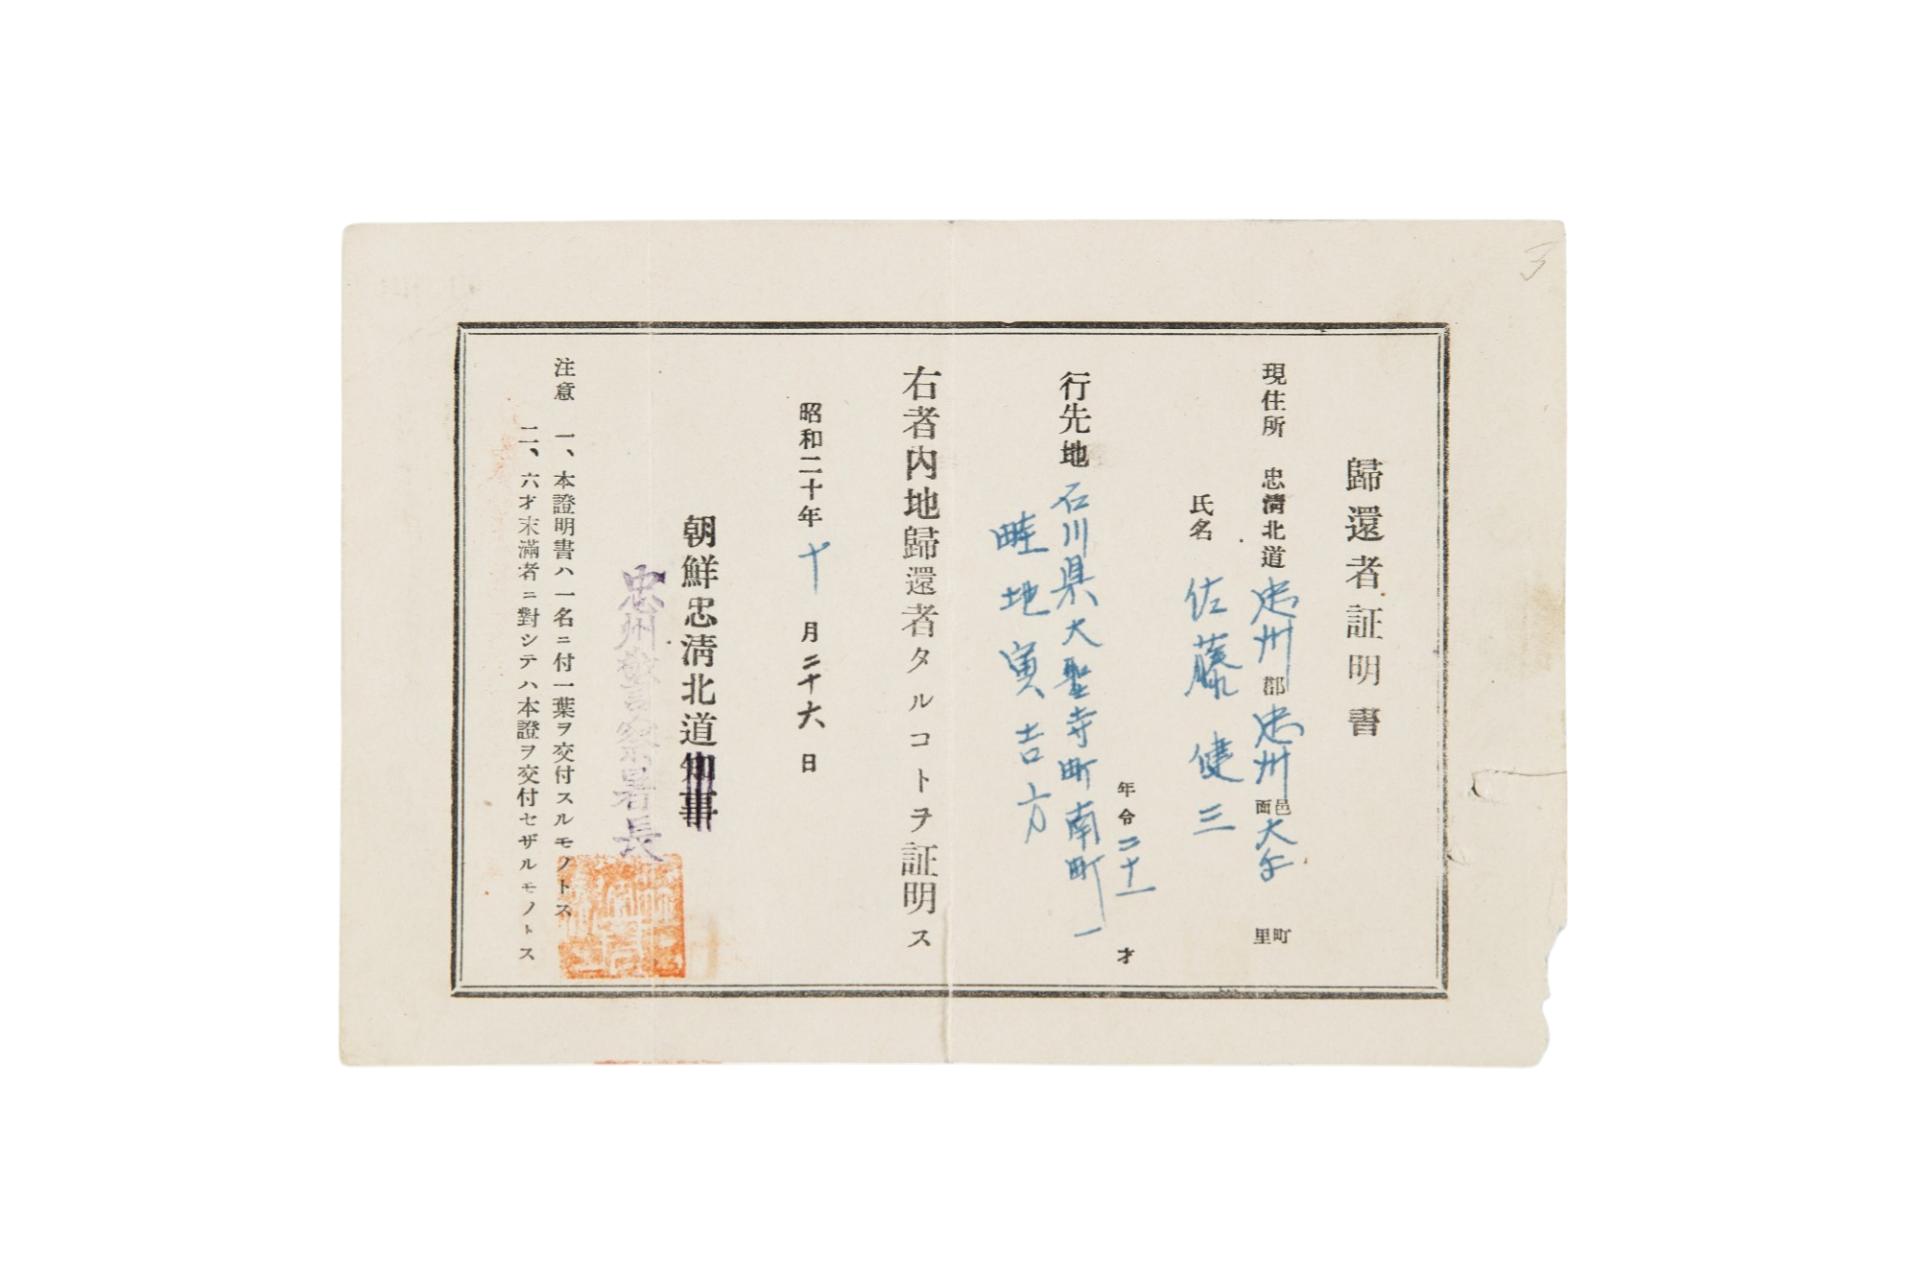 歸還者証明書
現住所 忠淸北道忠州郡忠州邑面大手町里
氏名 佐藤健三
年令二十一才
行先地石川県大聖寺町南町一
畦地寅吉方
右者內地歸還者タルコトヲ証明ス
昭和二十年十月二十六日
朝鮮忠淸北道知事
忠州警察署長
注意 一、本證明書ハ一名ニ付一葉ヲ交付スルモノトス
二、六才末滿者ニ對シテハ本證ヲ交付セザルモノトス